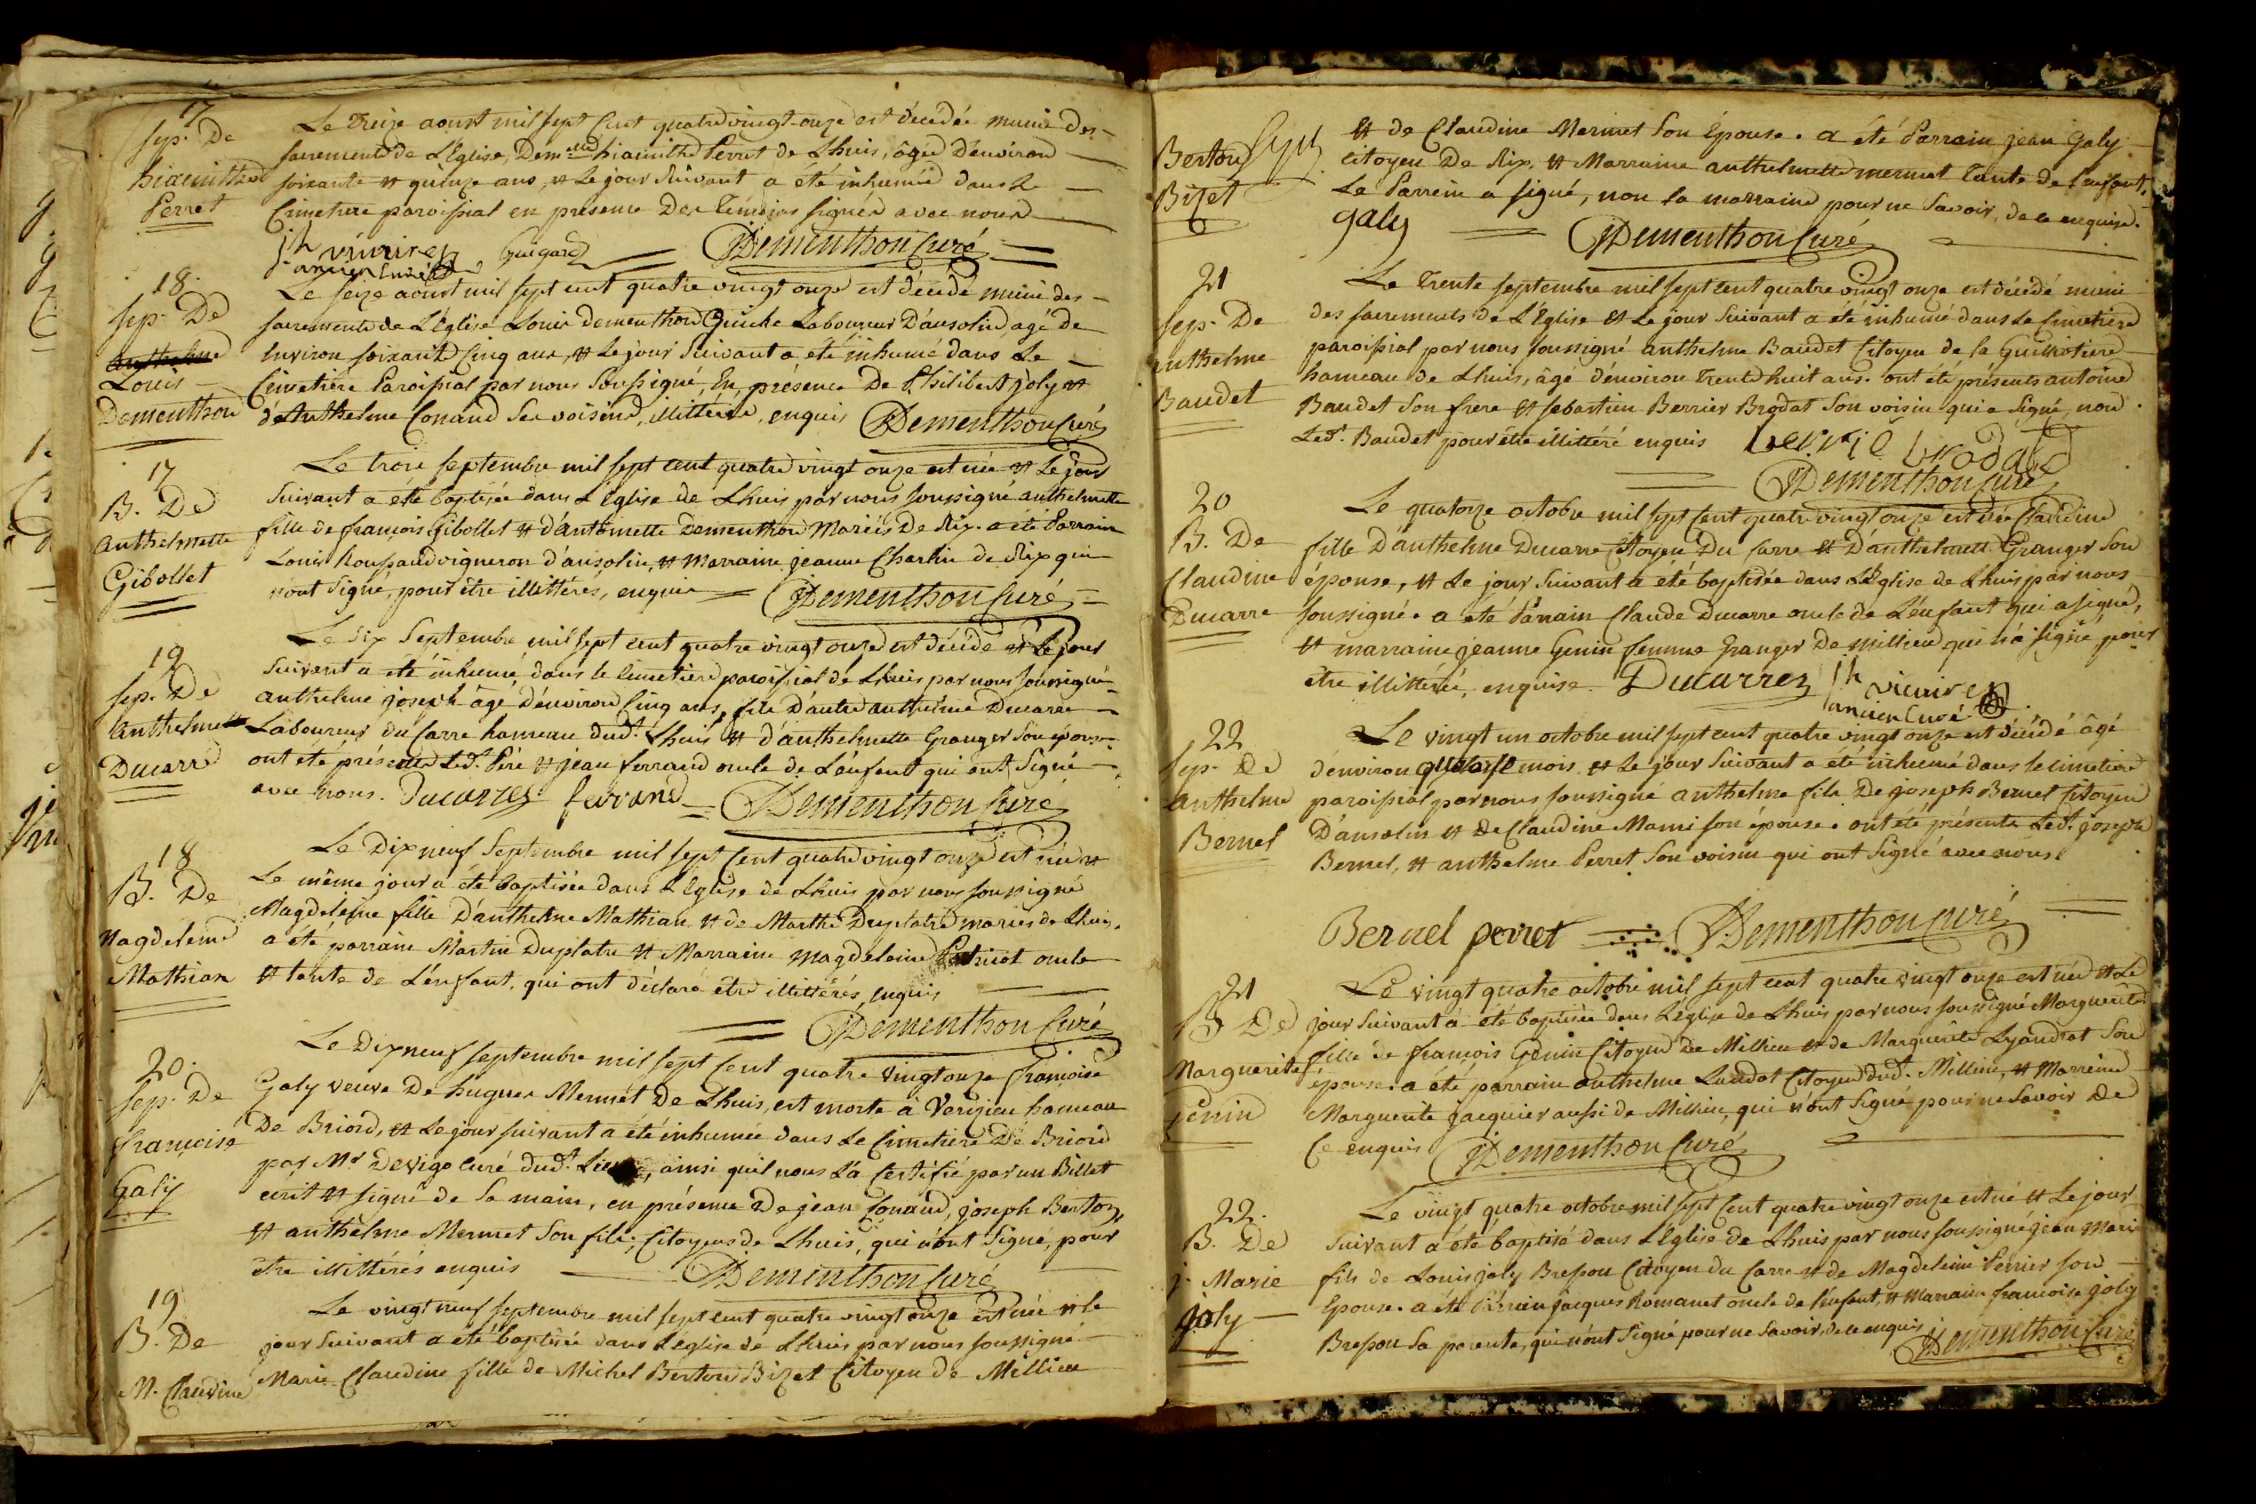 17
Sep. De
hiacinthe
Perret
Le treize aoust mil sept cent quatre vingt onze est décédée munie des
sacrements de L'Eglise, Dem.elle hiacinthe Perret de Lhuis, âgée d'environ
soixante et quinze ans, et Le jour suivant a été inhumée dans Le
Cimetiere paroissial en presence Des temoins signés avec nous
jh vicaire
ancien curé Guigard Dementhon Curé
18.
Sep. De
Louis
Dementhon
Le seize aoust mil sept cent quatre vingt onze est décédé muni des
sacrements de L'église Louis dementhon Guiche Laboureur D'ansolin agé de
Environ soixante Cinq ans, et Le jour suivant a été inhumé dans Le
Cimetiere Paroissial par nous soussigné, En présence De Philibert joly et
d'Anthelme Conand ses voisins, illittérés, enquis Dementhon Curé
17
B. De
Anthelmette
Gibollet
Le trois septembre mil sept cent quatre vingt onze est née et Le jour
suivant a été baptisée dans L'Eglise de Lhuis par nous soussigné anthelmette
fille de françois Gibollet et d'antoinette Dementhon Mariés De Rix. a été Parrain
Louis Roussaud vigneron d'ansolin, et Marraine jeanne Charlin de Rix qui
n'ont signé, pour être illittérés, enquis Dementhon Curé
19
Sep. De
Anthelme
Ducarre
Le six Septembre mil sept cent quatre vingt onze est décédé et Le jour
suivant a été inhumé, dans le cimetiere paroissial de Lhuis par nous soussigné
anthelme joseph âgé d'environ Cinq ans, fils D'autre anthelme Ducarre
Laboureur du Carre hameau dud.t Lhuis et d'anthelmette Granger son épouse
ont été présents Led.t Pere et jean ferrand oncle de L'enfant qui ont Signé
avec nous. Ducarre ferrand Dementhon Curé
18
B. De
Magdeleine
Mathian
Le Dix neuf Septembre mil sept Cent quatre vingt onze est née et
Le même jour a été baptisée dans L'Eglise de Lhuis par nous soussigné
Magdeleine fille D'anthelme Mathian et de Marthe Duplatre mariés de Lhuis.
a été parrain Martin Duplatre et Marraine Magdeleine oncle
et tante de L'enfant. qui ont déclaré être illittérés, enquis
Dementhon Curé
20.
Sep. De
francoise
Galy
Le Dix neuf septembre mil sept Cent quatre vingt onze françoise
Galy veuve De hugues Mermet De Lhuis, est morte à Verizieu hameau
De Briord, et Le jour suivant a été inhumée dans Le Cimetiere De Briord
par Mr Devigo Curé dud.t Lieu, ainsi qu'il nous L'a Certifié par un Billet
écrit et signé de sa main, en présence De jean Conand, joseph Berton,
et anthelme Mermet son fils, Citoyens de Lhuis, qui n'ont Signé, pour
etre illittérés enquis Dementhon Curé
19
B. De
M. Claudine
Le vingt neuf septembre mil sept cent quatre vingt onze est née et le
jour suivant a été baptisée dans L'Eglise de Lhuis par nous soussigné
Marie Claudine fille de Michel Berton Bizet Citoyen de Millieu
Berton
Bizet
et de Claudine Mermet son Épouse. a été Parrain jean Galy
citoyen De Rix, et Marraine anthelmette mermet tante de l'enfant.
Le Parrein a signé, non la marraine pour ne savoir, de ce enquise.
galy Dementhon Curé
21
Sep. De
anthelme
Baudet
Le Trente septembre mil sept cent quatre vingt onze est décédé muni
des sacrements de L'Eglise et Le jour suivant a été inhumé dans Le Cimetiere
paroissial par nous soussigné anthelme Baudet Citoyen de la Guillotiere
hameau de Lhuis, âgé d'environ Trente huit ans. ont été présents antoine
Baudet son frere et sebastien Berrier Brodat son voisin qui a signé, non
Led.t Baudet pour être illittéré enquis berrie brodat
Dementhon Curé
20
B. De
Claudine
Ducarre
Le quatorze octobre mil sept Cent quatre vingt onze est née Claudine
fille D'anthelme Ducarre Citoyen Du Carre et D'anthelmette Granger son
épouse, et Le jour suivant a été baptisée dans L'Eglise de Lhuis par nous
soussigné. a été Parrain Claude Ducarre oncle de L'enfant qui a signé,
et marraine jeanne Genin femme Granger De millieu qui n'a signé pour
être illittérée, enquise. Ducarre jh vicaire
ancien Curé
22
Sep. De
Anthelme
Bernel
Le vingt un octobre mil sept cent quatre vingt onze est décédé âgé
d'environ quatorse mois et Le jour suivant a été inhumé dans le cimetiere
paroissial par nous soussigné anthelme fils De joseph Bernel Citoyen
D'ansolin et de Claudine Mami son épouse. ont été présents Led.t joseph
Bernel, et anthelme Perret son voisin qui ont signé avec nous.
Bernel perret Dementhon Curé
21
B De
Marguerite
jenin
Le vingt quatre octobre mil sept cent quatre vingt onze est née et Le
jour suivant a été baptisée dans L'église de Lhuis par nous soussigné Marguerite
fille de francois Genin Citoyen De Millieu et de Marguerite Lyaudat son
épouse. a été parrain anthelme Laudat Citoyen dud.t Millieu, et Marreine
Marguerite jacquier aussi de Millieu, qui n'ont signé pour ne savoir De
Ce enquis Dementhon Curé
22.
B. De
j. Marie
joly
Le vingt quatre octobre mil sept Cent quatre vingt onze est né et Le jour
suivant a été baptisé dans L'Eglise de Lhuis par nous soussigné jean Marie
fils de Louis joly Bresson Citoyen du Carre et de Magdeleine Perrier son
Epouse. a été Parrain jacques Romanet oncle de l'enfant, et Marraine francoise joly
Bresson sa parente, qui n'ont signé pour ne savoir, de ce enquis Dementhon Curé